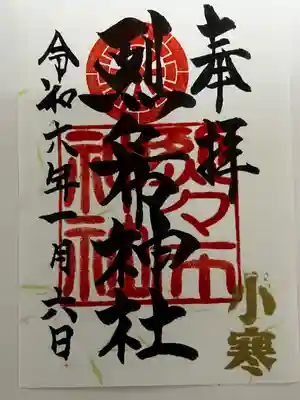 奉拝
烈々布神社
令和六年一月六日
小寒
烈々布
神社